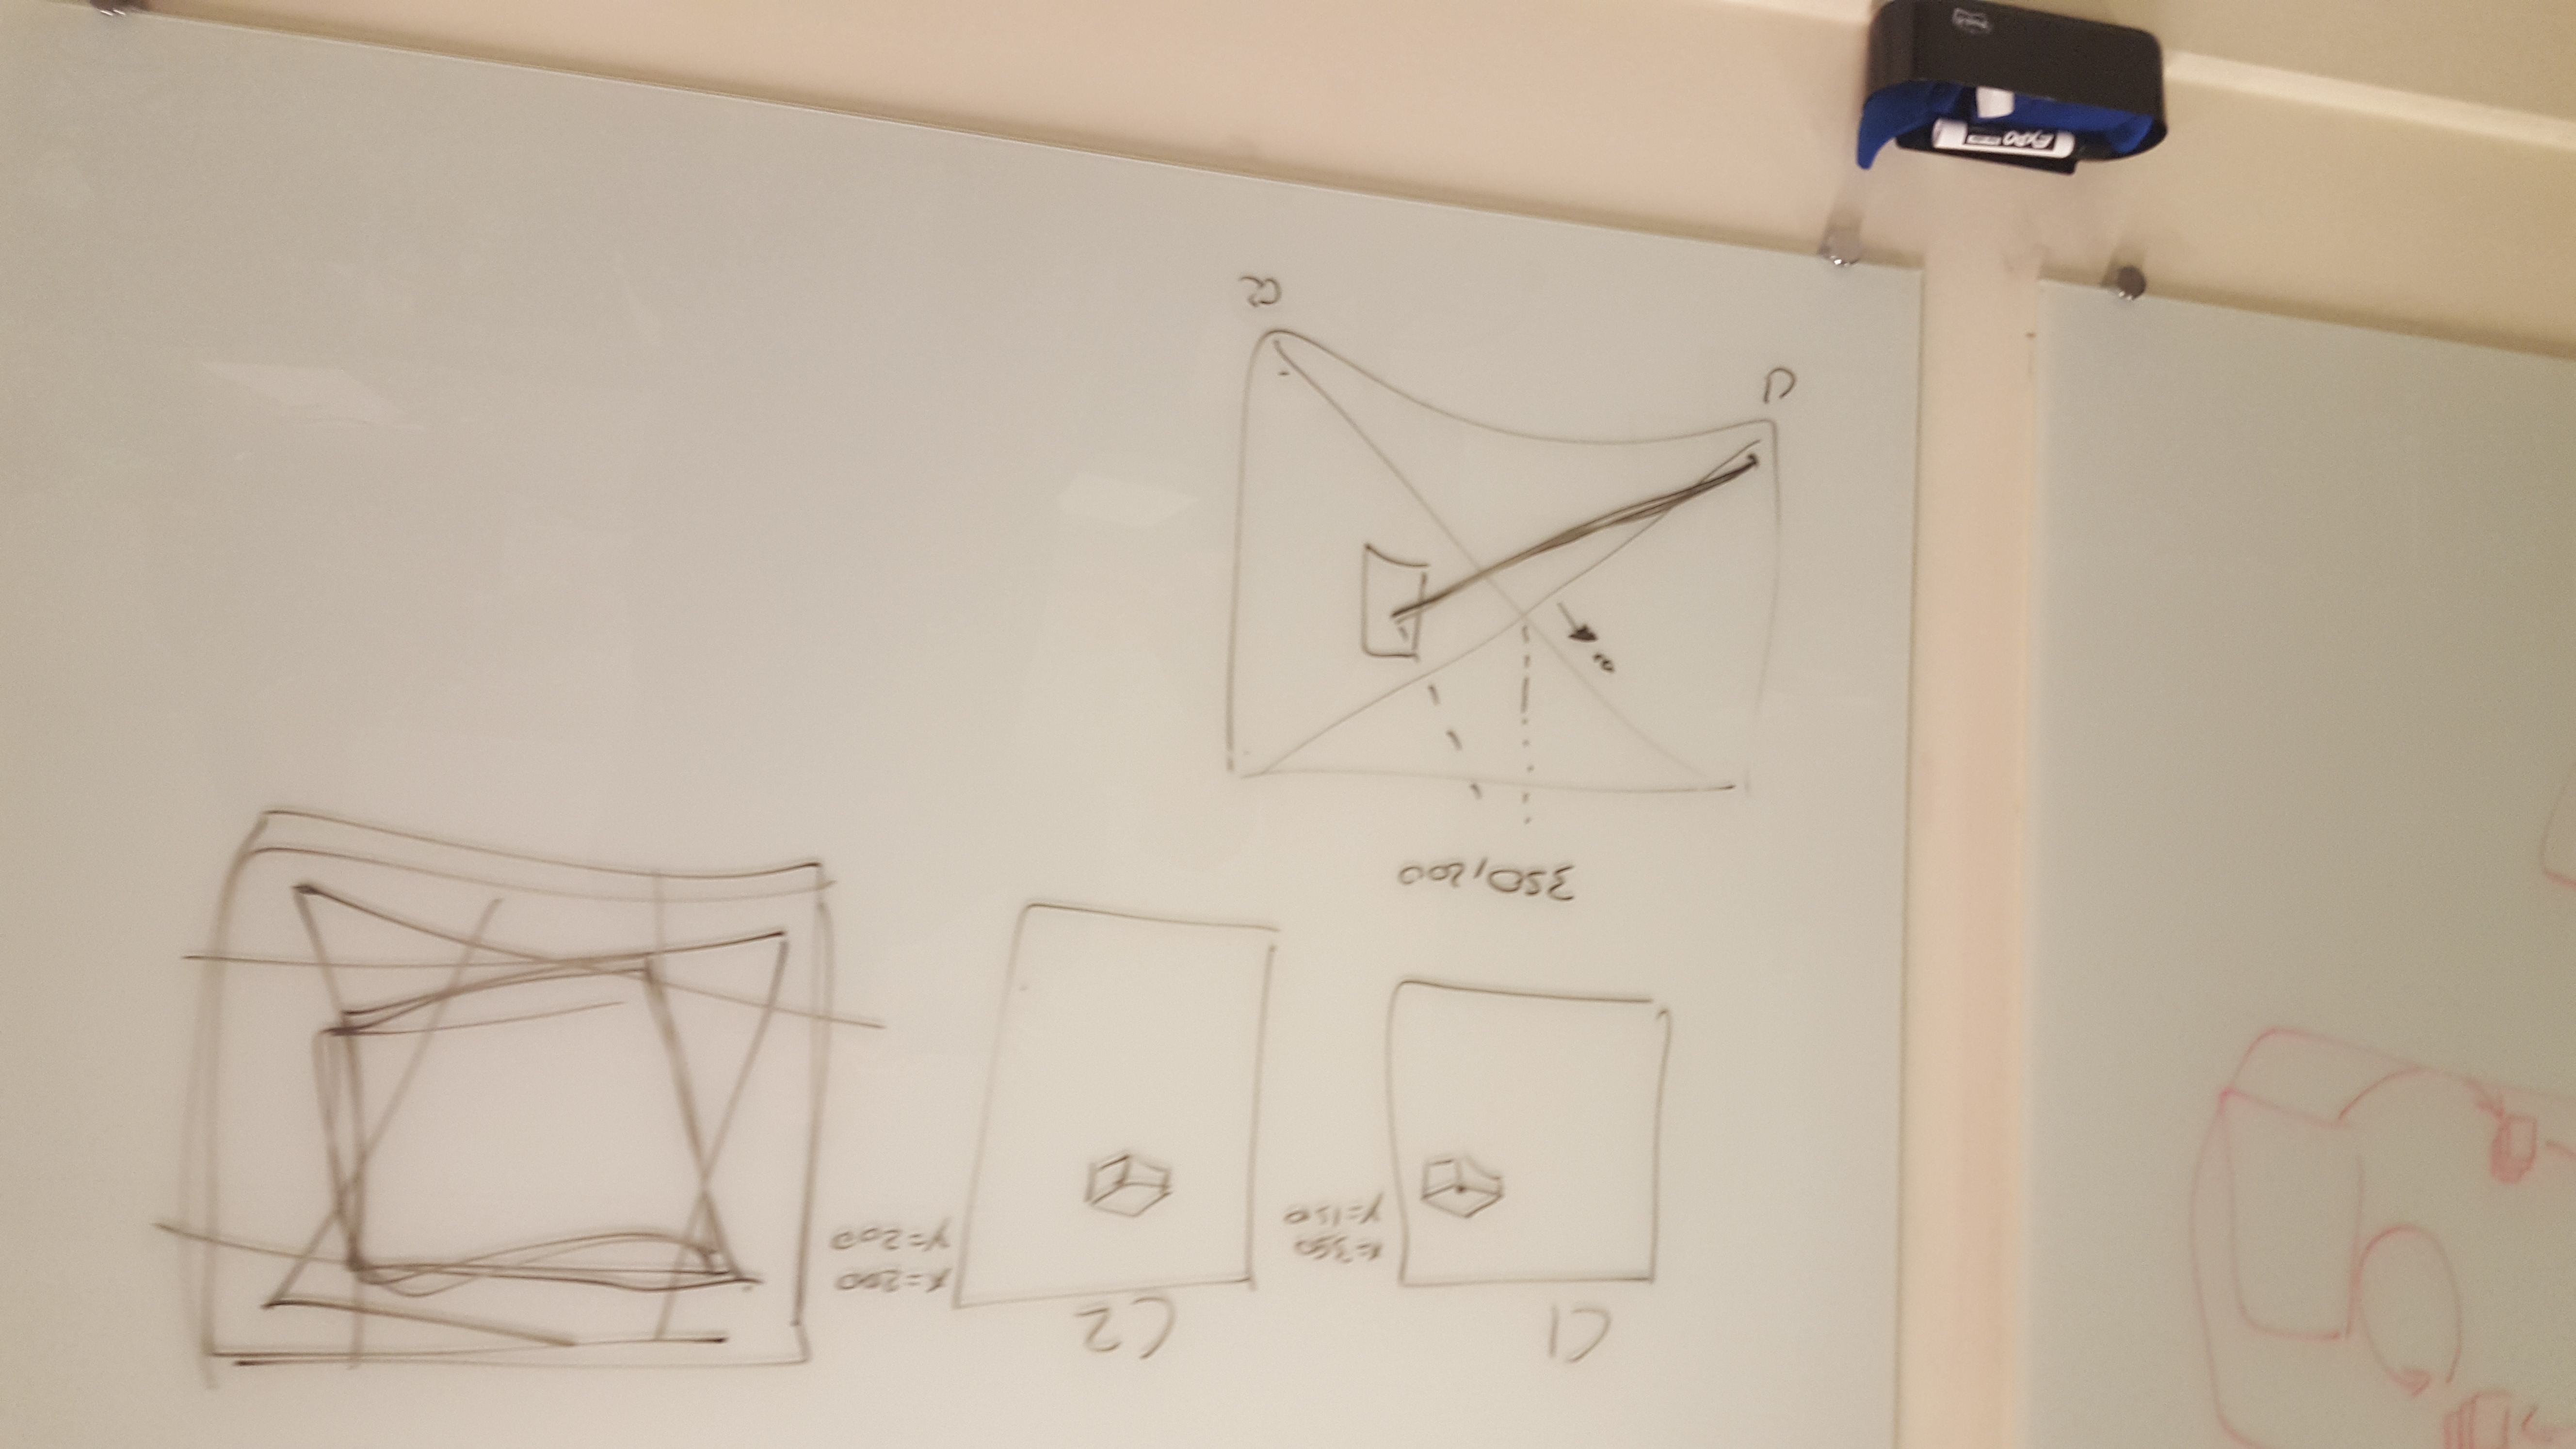 C1
C2
x=350
y=150
x=200
y=200
350,200
C1
C2
EXPO